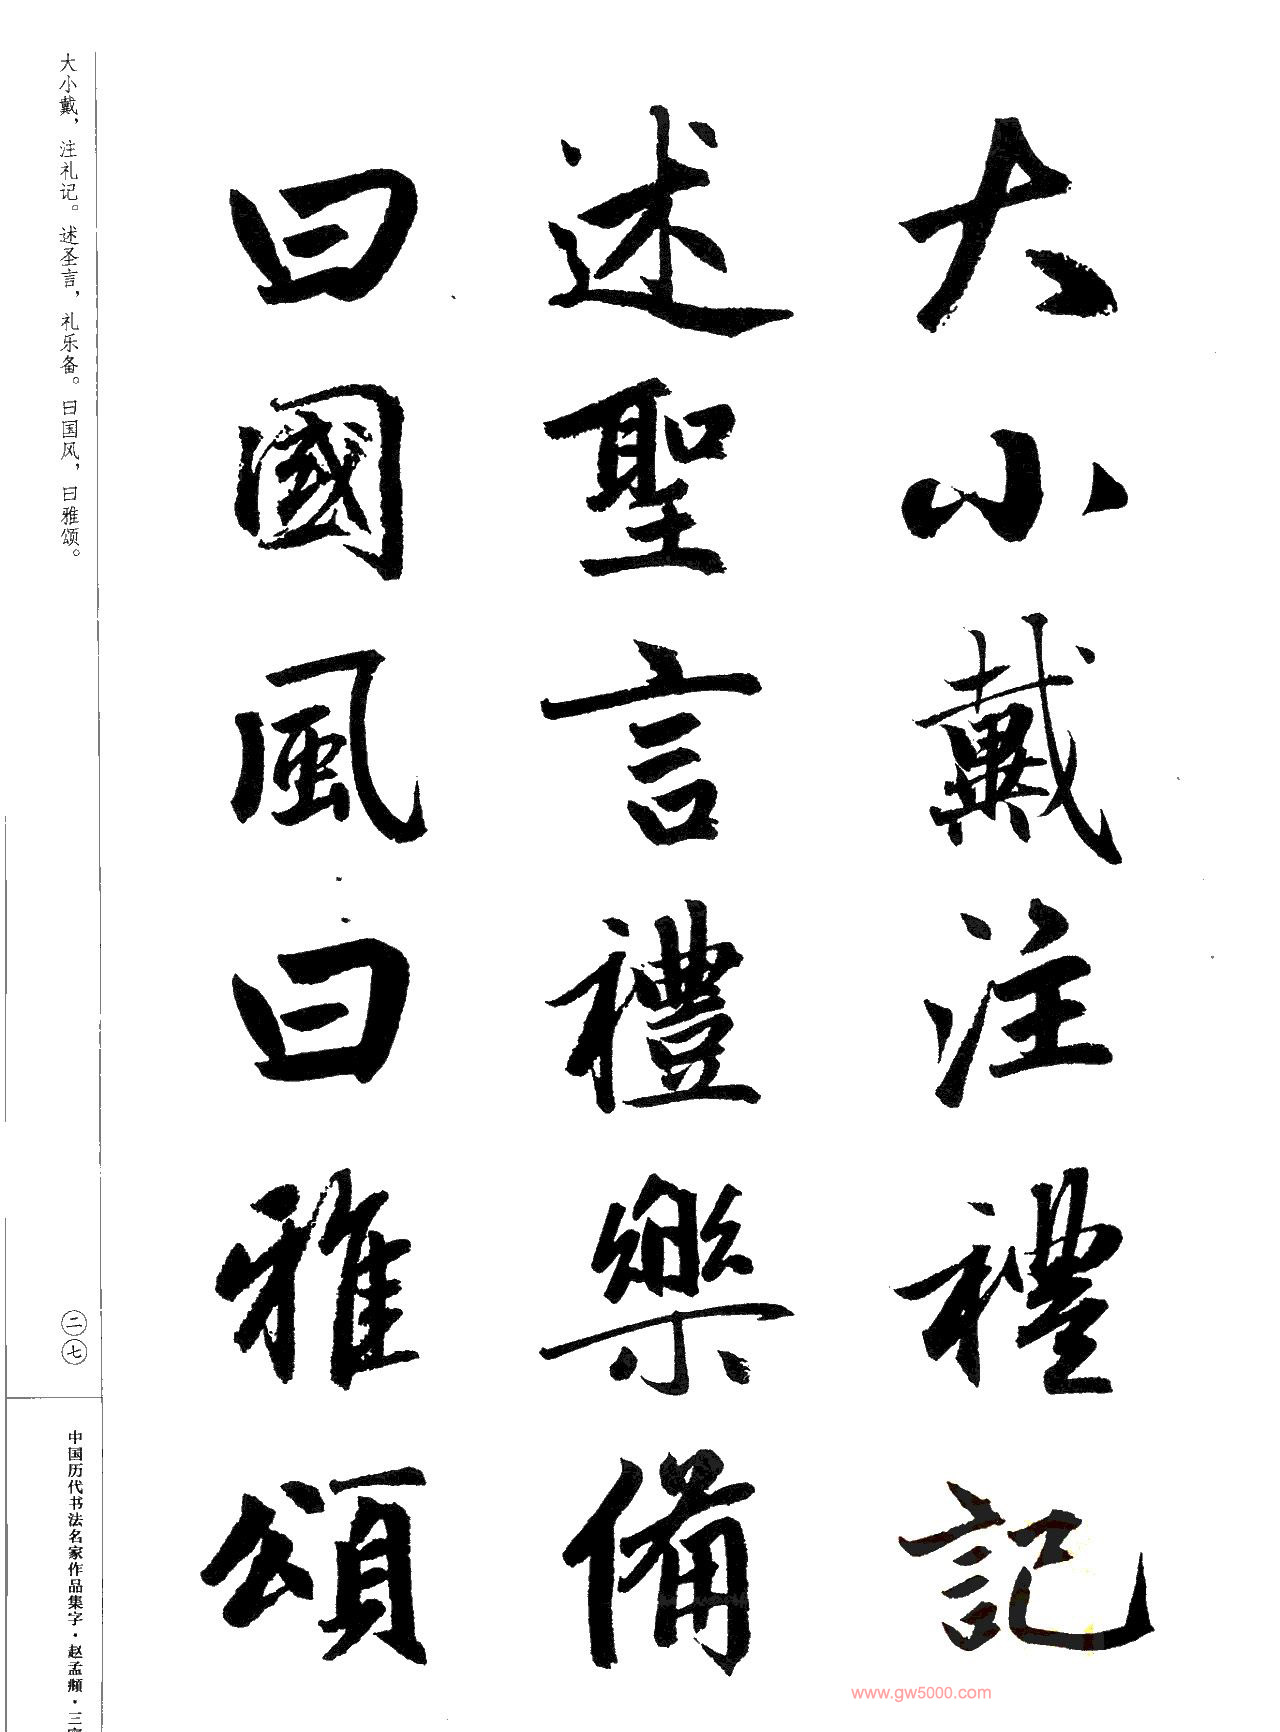 大小戴注禮記
述聖言禮樂備
曰國風曰雅頌
大小戴，注礼记。述圣言，礼乐备。曰国风，曰雅颂。
二七
中国历代书法名家作品集字·赵孟頫·三
www.gw5000.com